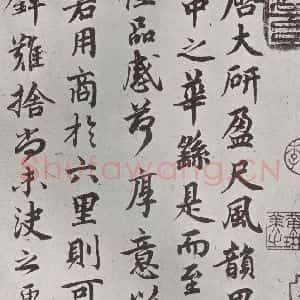 啓大研盈尺風韻異
中之華繇是而至
佳品感荷厚意以
若用商於六里則可
難捨尚未決之更
Shufawang.CN